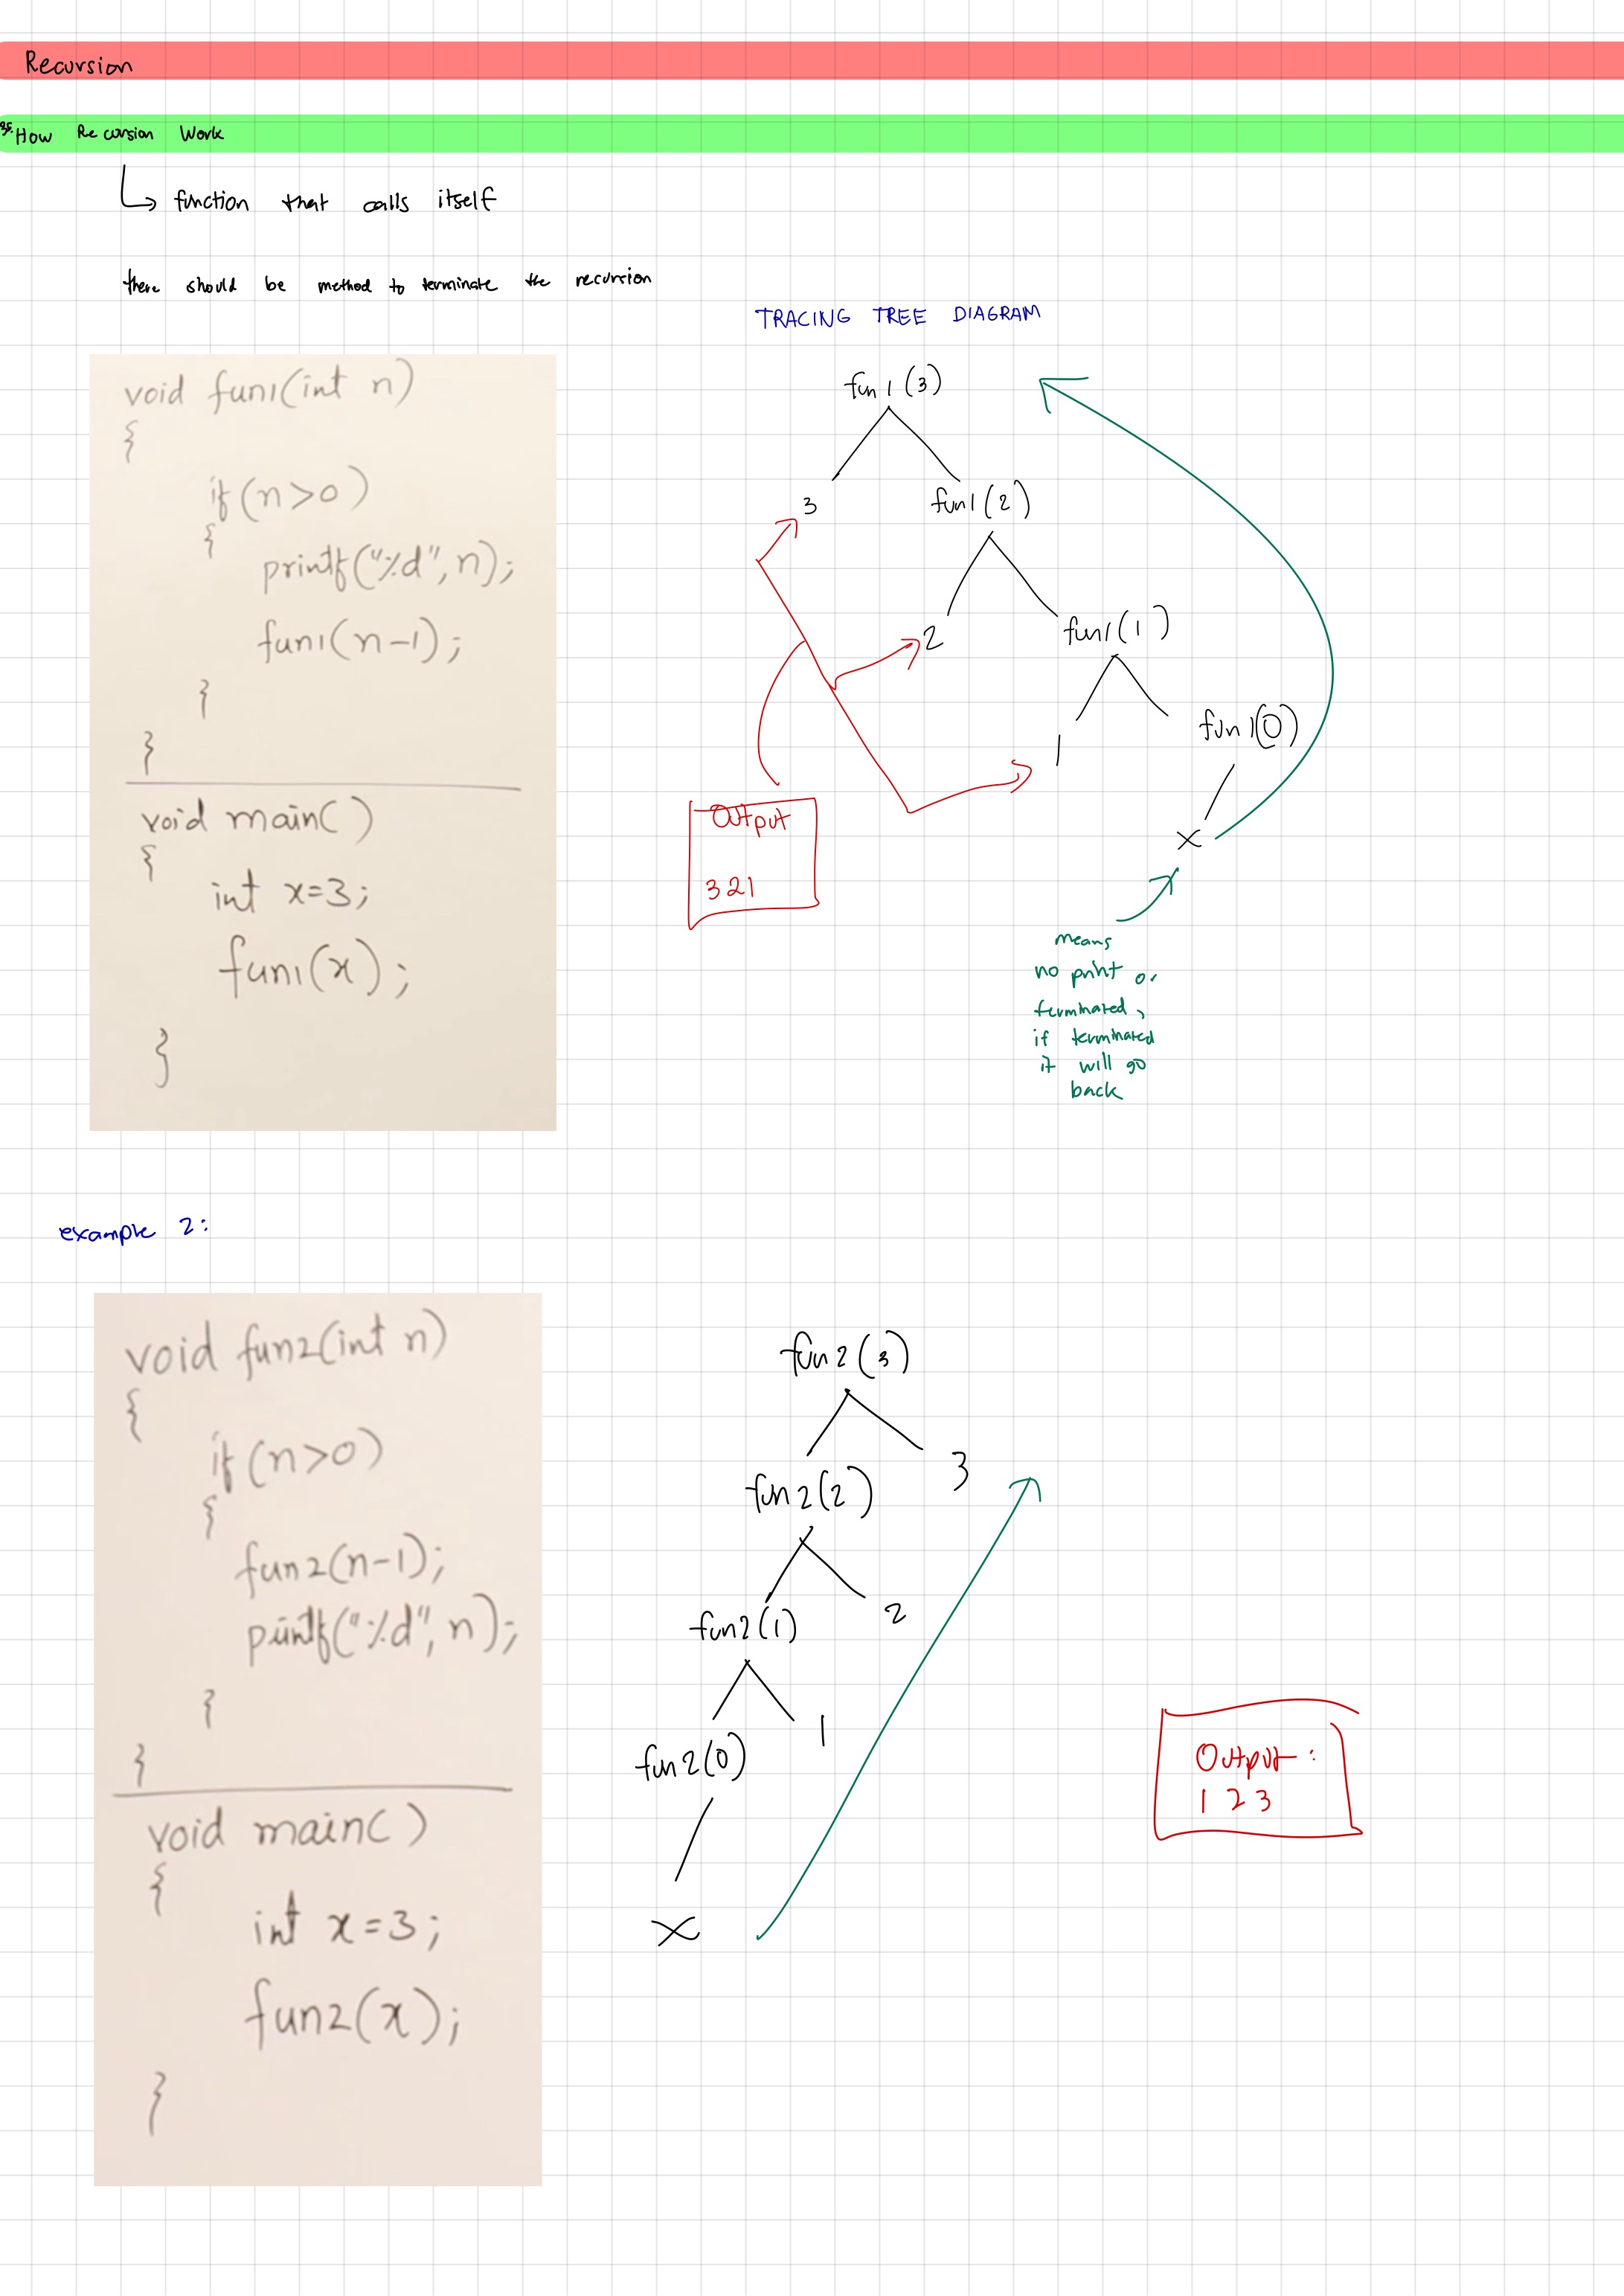 Recursion
How Recursion Work
function that calls itself
there should be method to terminate the recursion
TRACING TREE DIAGRAM
void fun1(int n)
{
if(n>0)
{
printf("%d", n);
fun1(n-1);
}
}
void main()
{
int x=3;
fun1(x);
}
fun1(3)
3
fun1(2)
2
fun1(1)
1
fun1(0)
x
Output
321
means
no print or
terminated,
if terminated
it will go
back
example 2:
void fun2(int n)
{
if(n>0)
{
fun2(n-1);
printf("%d", n);
}
}
void main()
{
int x=3;
fun2(x);
}
fun2(3)
fun2(2)
3
fun2(1)
2
fun2(0)
1
x
Output:
1 2 3